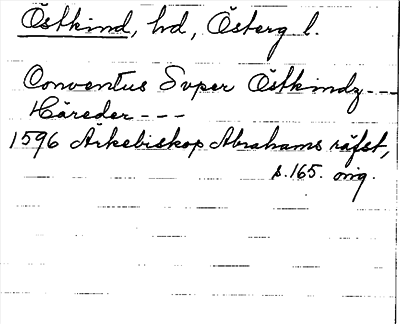 Östkind, hd, Österg l.
Conventus Svper Östkindz ---
Häreder ---
1596 Arkebiskop Abrahams räfst,
s. 165. orig.